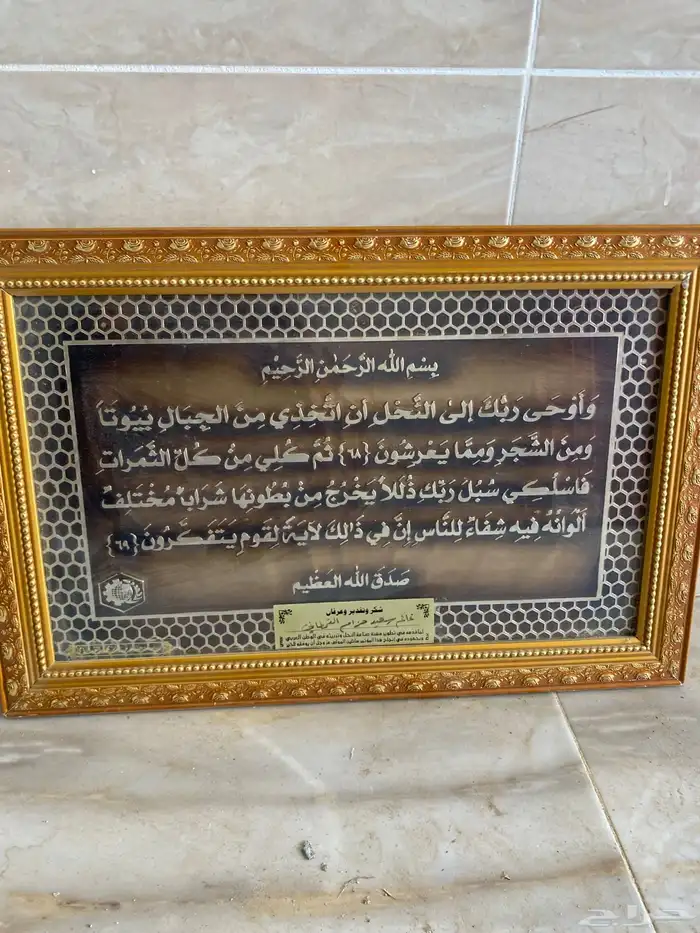 بِسْمِ اللهِ الرَّحْمَٰنِ الرَّحِيْمِ
وَأَوْحَى رَبُّكَ إِلَىٰ النَّحْلِ أَنِ اتَّخِذِي مِنَ الجِبَالِ بُيُوتَاً
وَمِنَ الشَّجَرِ وَمِمَّا يَعْرِشُونَ {٦٨} ثُمَّ كُلِي مِنْ كُلِّ الثَّمَرَاتِ
فَاسْلُكِي سُبُلَ رَبِّكِ ذُلُلاً يَخْرُجُ مِنْ بُطُونِهَا شَرَابٌ مُخْتَلِفٌ
أَلْوَانُهُ فِيهِ شِفَاءٌ لِلنَّاسِ إِنَّ فِي ذَلِكَ لآيَةً لِقَومٍ يَتَفَكَّرُونَ {٦٩}
صَدَقَ اللهُ العَظِيم
شكر وتقدير وعرفان
لما قدمه في تطوير مهنة صناعة النحل وتربيته في الوطن العربي
حراج